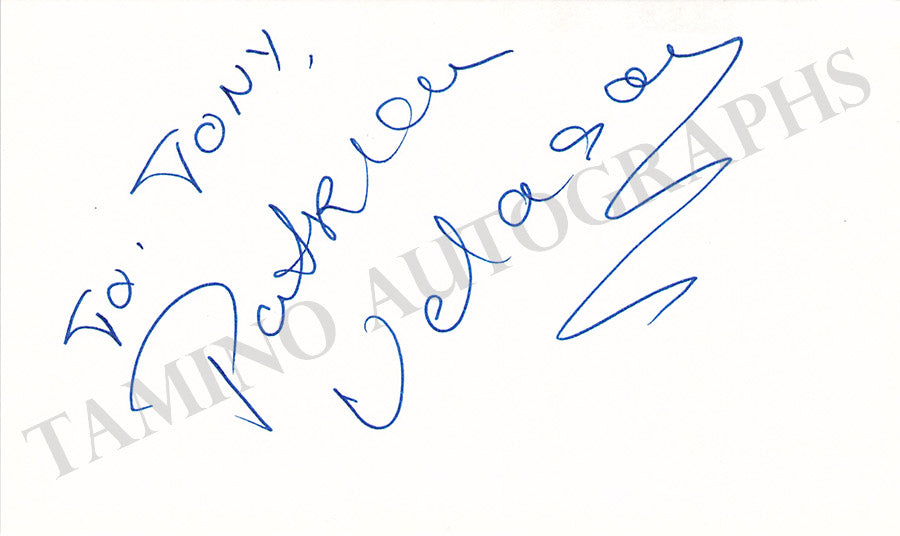 To: TONY,
Patricia
Velasquez
TAMINO AUTOGRAPHS